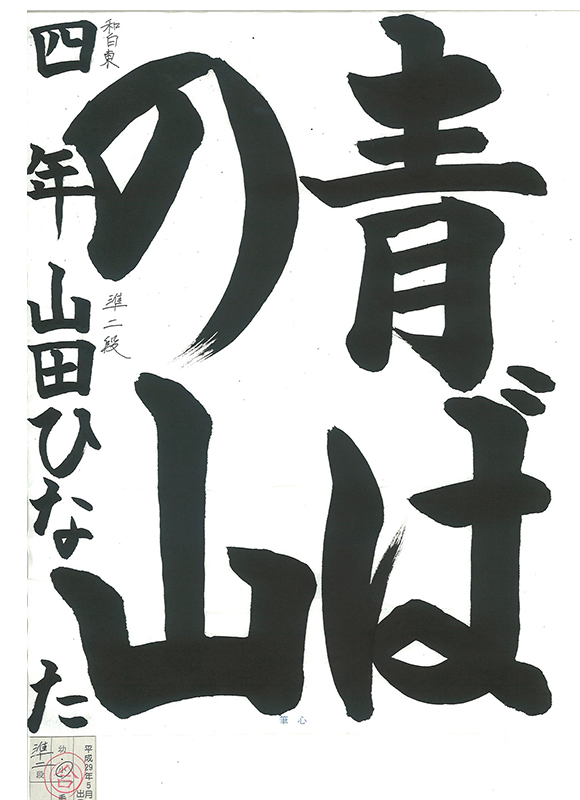 青ば
の山
和白東
準二段
四年 山田ひなた
筆心
平成29年5月
出
幼・小
準二段
合